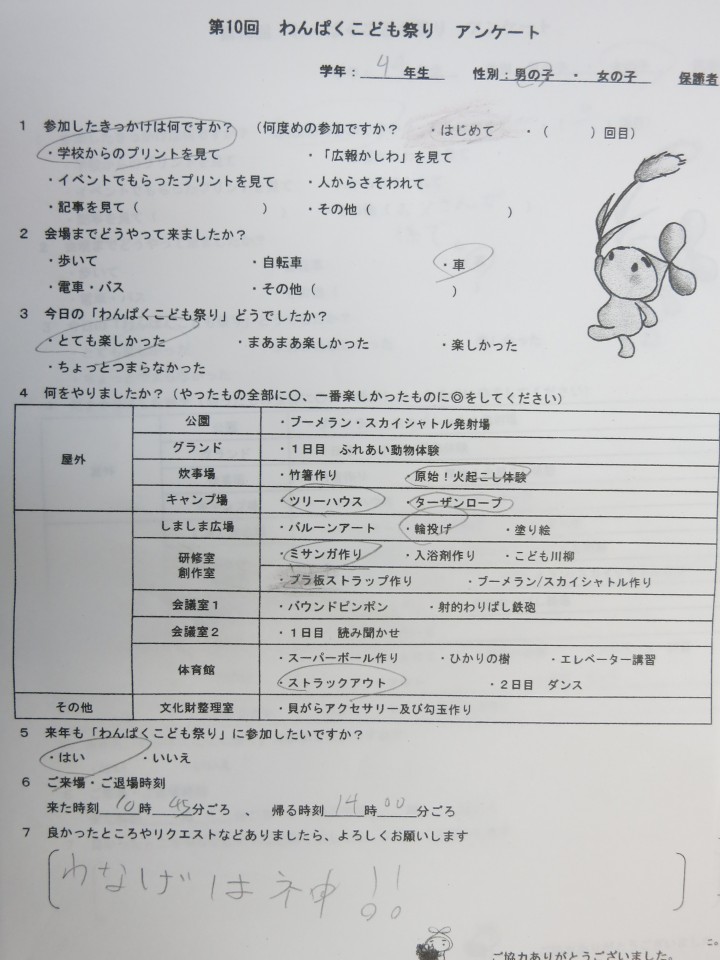 第10回 わんぱくこども祭り アンケート
学年：4年生 性別：男の子 ・ 女の子 保護者
1 参加したきっかけは何ですか？ （何度めの参加ですか？ ・はじめて ・（ ）回目）
・学校からのプリントを見て ・「広報かしわ」を見て
・イベントでもらったプリントを見て ・人からさそわれて
・記事を見て（ ） ・その他（ ）
2 会場までどうやって来ましたか？
・歩いて ・自転車 ・車
・電車・バス ・その他（ ）
3 今日の「わんぱくこども祭り」どうでしたか？
・とても楽しかった ・まあまあ楽しかった ・楽しかった
・ちょっとつまらなかった
4 何をやりましたか？（やったもの全部に〇、一番楽しかったものに◎をしてください）
屋外 公園 ・ブーメラン・スカイシャトル発射場
グランド ・１日目 ふれあい動物体験
炊事場 ・竹箸作り ・原始！火起こし体験
キャンプ場 ・ツリーハウス ・ターザンロープ
しましま広場 ・バルーンアート ・輪投げ ・塗り絵
研修室 創作室 ・ミサンガ作り ・入浴剤作り ・こども川柳
・プラ板ストラップ作り ・ブーメラン/スカイシャトル作り
会議室１ ・バウンドピンポン ・射的わりばし鉄砲
会議室２ ・１日目 読み聞かせ
体育館 ・スーパーボール作り ・ひかりの樹 ・エレベーター講習
・ストラックアウト ・２日目 ダンス
その他 文化財整理室 ・貝がらアクセサリー及び勾玉作り
5 来年も「わんぱくこども祭り」に参加したいですか？
・はい ・いいえ
6 ご来場・ご退場時刻
来た時刻10時45分ごろ 、 帰る時刻14時00分ごろ
7 良かったところやリクエストなどありましたら、よろしくお願いします
わなげは神!!
ご協力ありがとうございました。